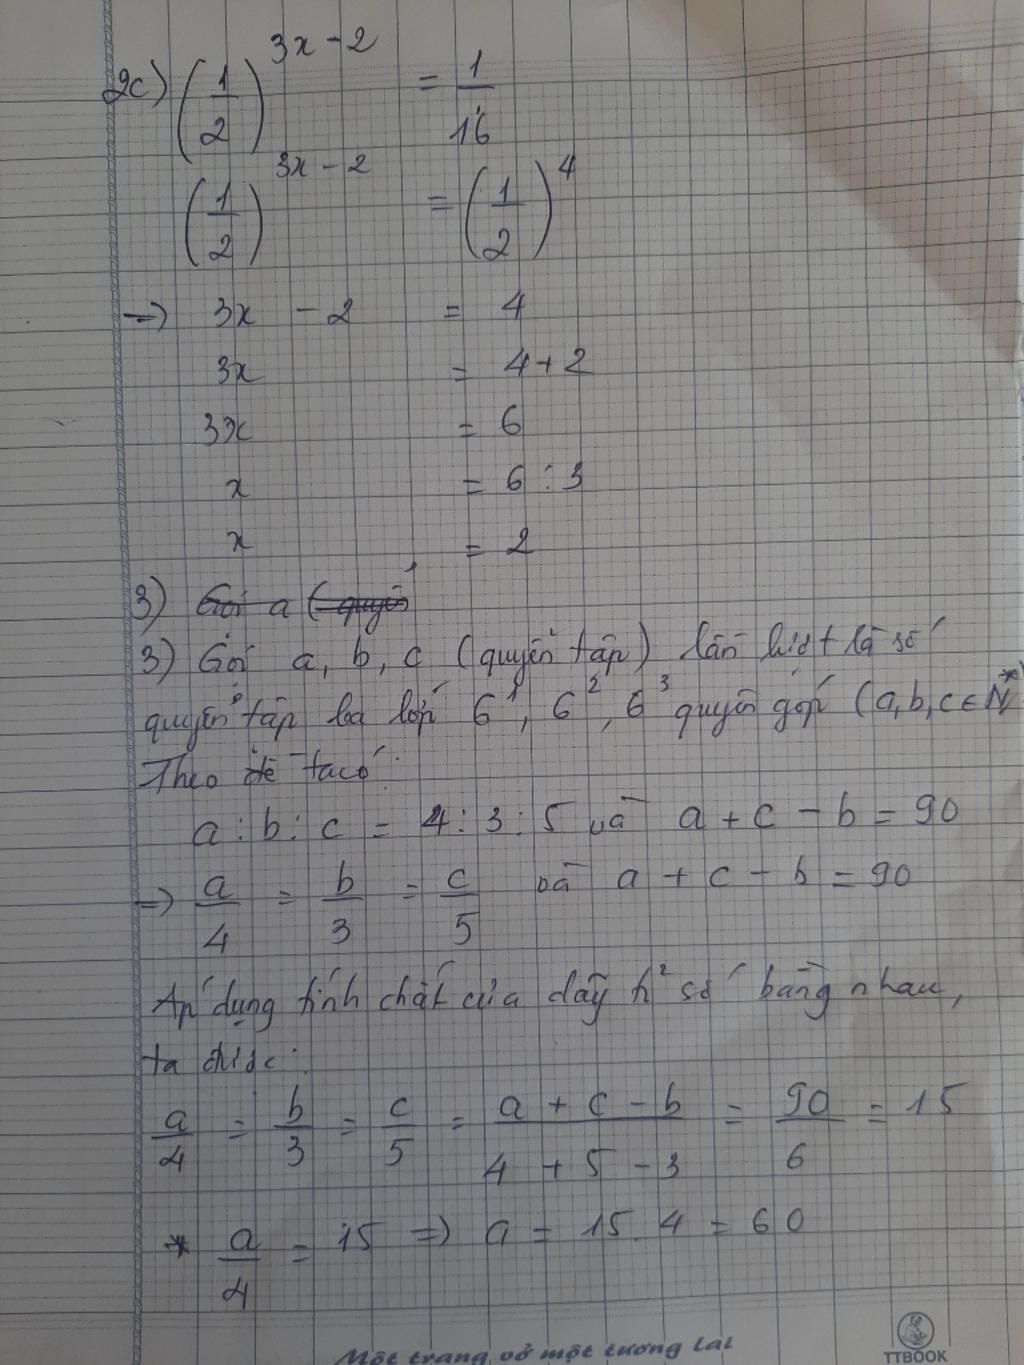 2c) (1/2)^(3x-2) = 1/16
(1/2)^(3x-2) = (1/2)^4
→) 3x - 2 = 4
3x = 4 + 2
3x = 6
x = 6 : 3
x = 2
3) Gọi a (quyển
3) Gọi a, b, c (quyển tập) lần lượt là số
quyển tập ba lớp 6^1, 6^2, 6^3 quyên góp (a,b,c ∈ N*)
Theo đề ta có:
a : b : c = 4 : 3 : 5 và a + c - b = 90
=) a/4 = b/3 = c/5 và a + c - b = 90
Áp dụng tính chất của dãy tỉ số bằng nhau,
ta được:
a/4 = b/3 = c/5 = (a + c - b)/(4 + 5 - 3) = 90/6 = 15
* a/4 = 15 =) a = 15 . 4 = 60
Một trang vở một tương lai
TTBOOK